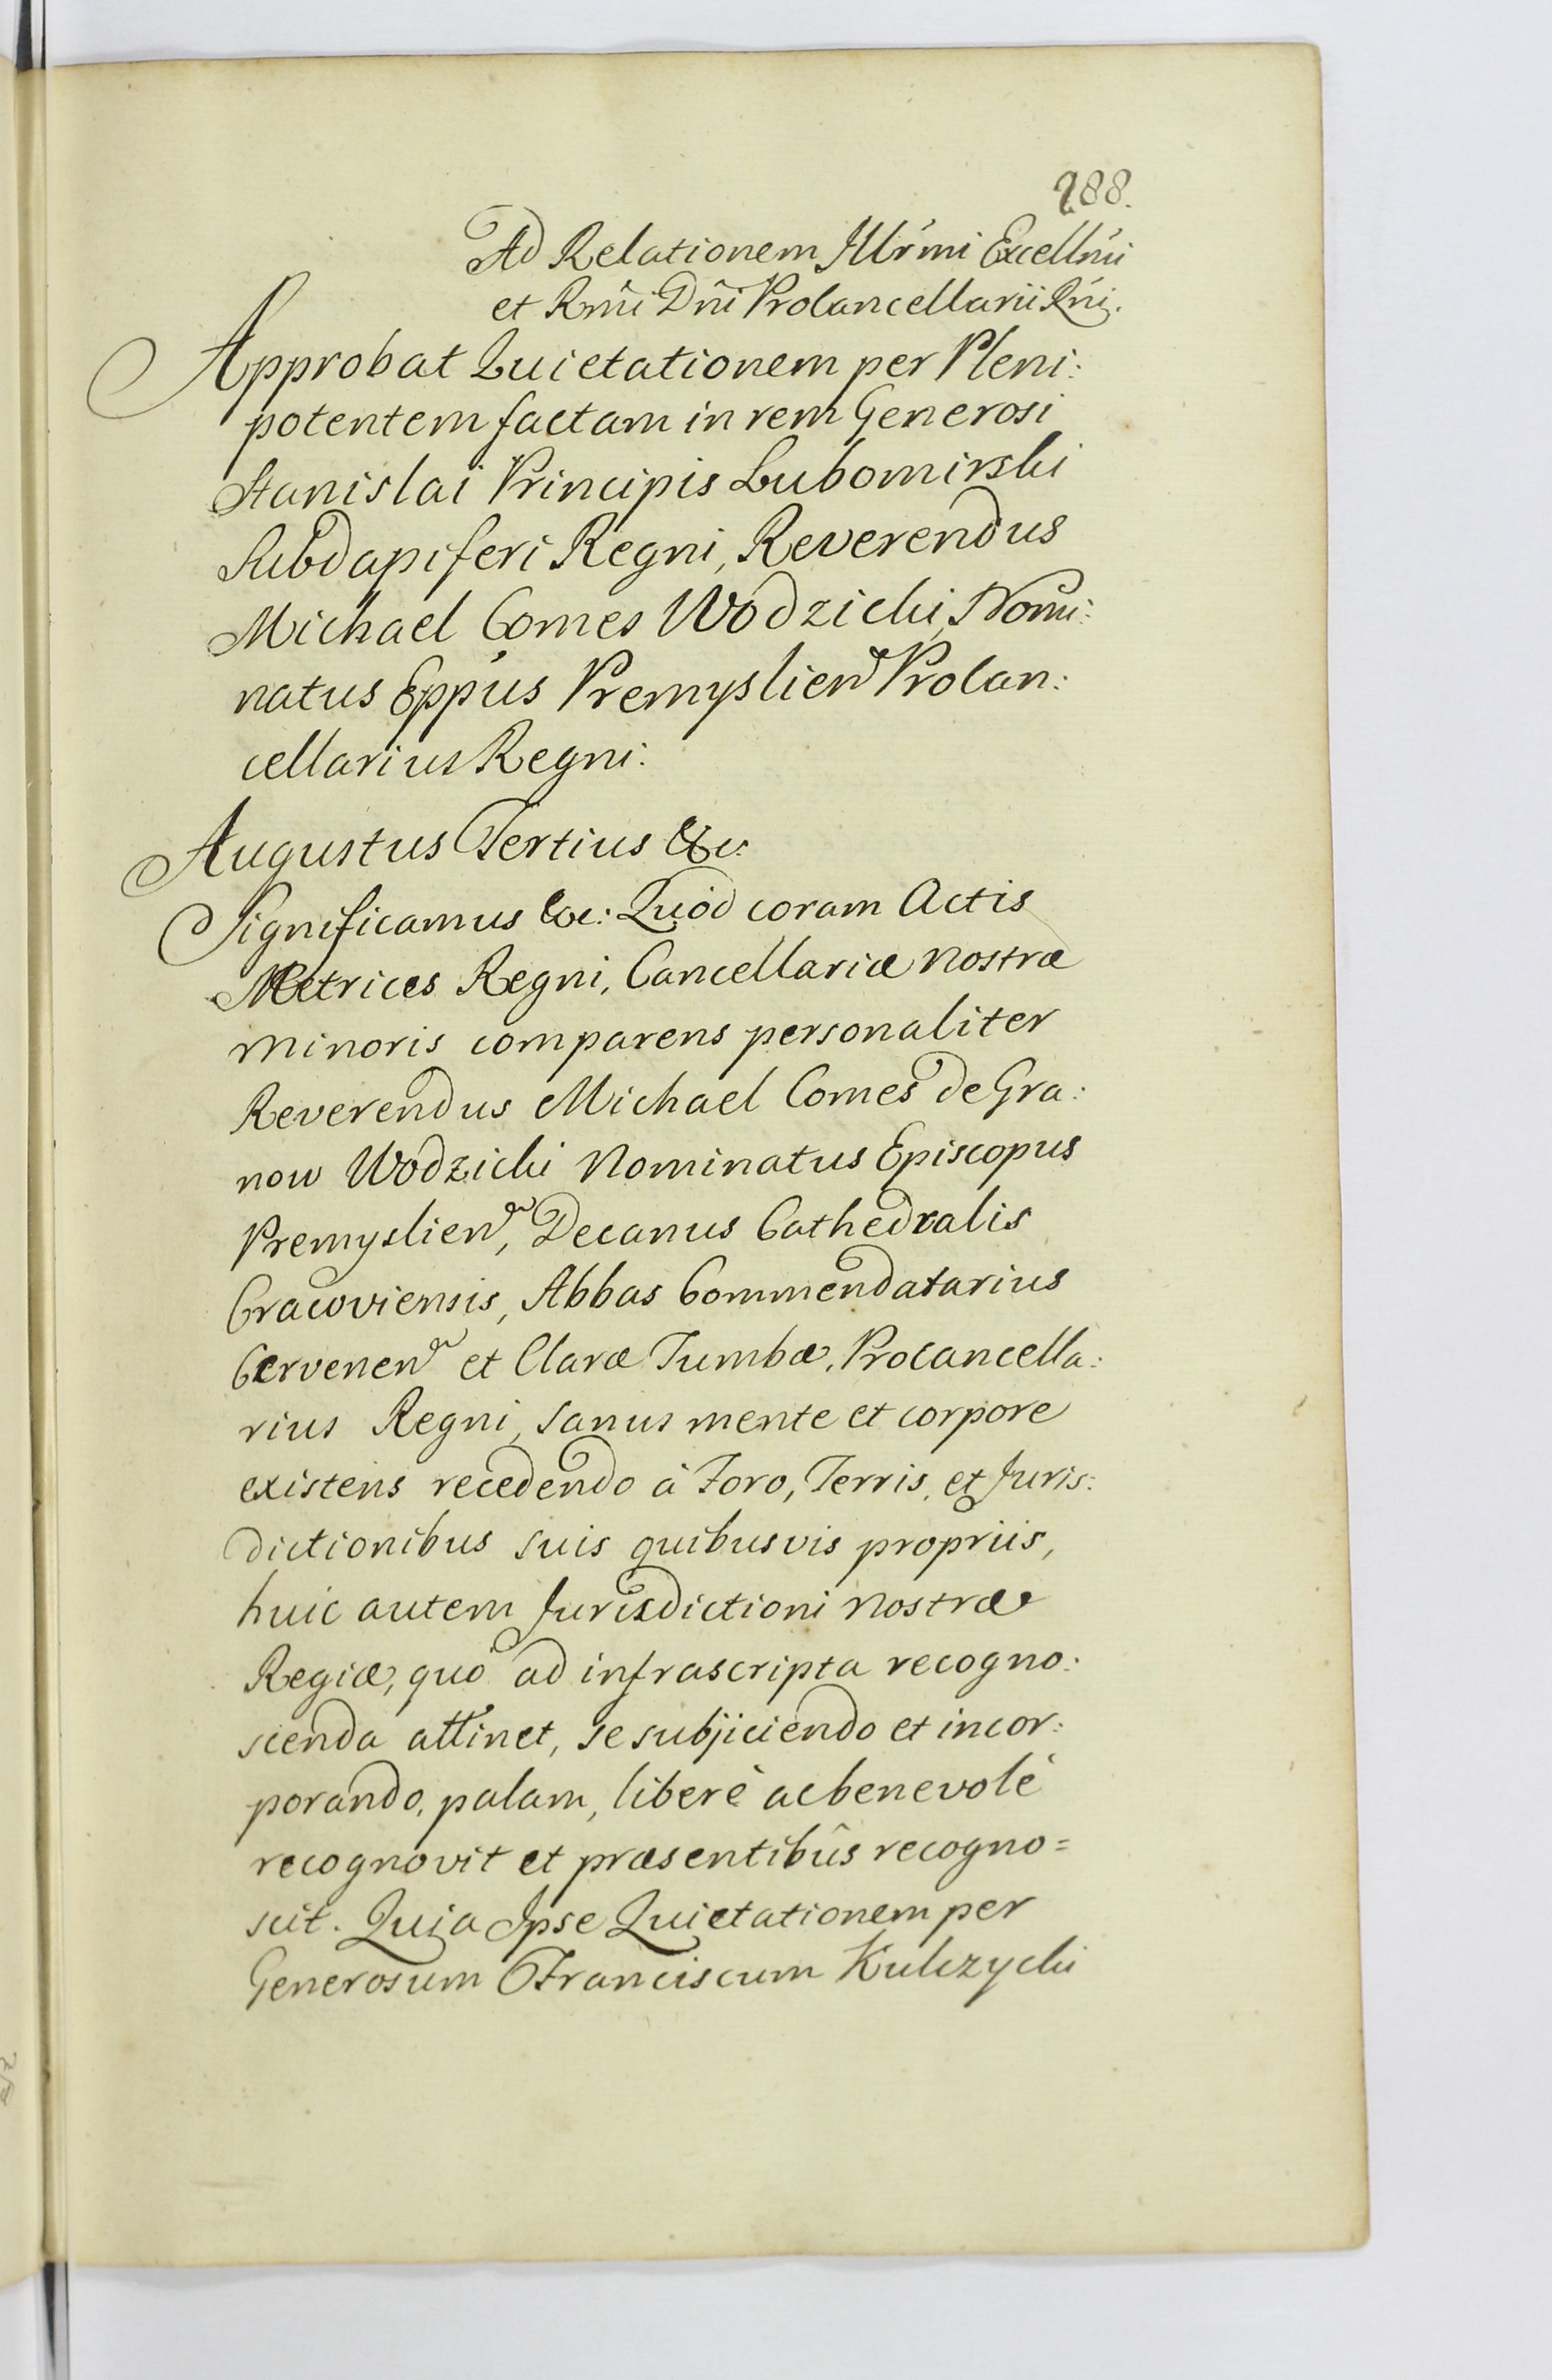 288.
Ad Relationem Illr̃mi Excellm̃i
et Rm̃i Dñi Procancellarii Rñi.
Approbat Quietationem per Pleni:
potentem factam in rem Generosi
Stanislai Principis Lubomirski
Subdapiferi Regni, Reverendus
Michael Comes Wodzicki, Nomi:
natus Epp̃us Premyslien̄ Procan:
cellarius Regni:
Augustus Tertius &c:
Significamus &c: Quod coram Actis
Metrices Regni, Cancellariæ nostræ
minoris comparens personaliter
Reverendus Michael Comes de Gra:
now Wodzicki Nominatus Episcopus
Premyslien̄, Decanus Cathedralis
Cracoviensis, Abbas Commendatarius
Cervenen̄ et Claræ Tumbæ, Procancella:
rius Regni, sanus mente et corpore
existens recedendo à Foro, Terris, et Juris:
dictionibus suis quibusvis propriis,
huic autem Jurisdictioni nostræ
Regiæ, quò ad infrascripta recogno:
scenda attinet, se subjiciendo et incor:
porando, palam, liberè ac benevolè
recognovit et præsentibûs recogno=
scit. Quia Ipse Quietationem per
Generosum Franciscum Kulczycki